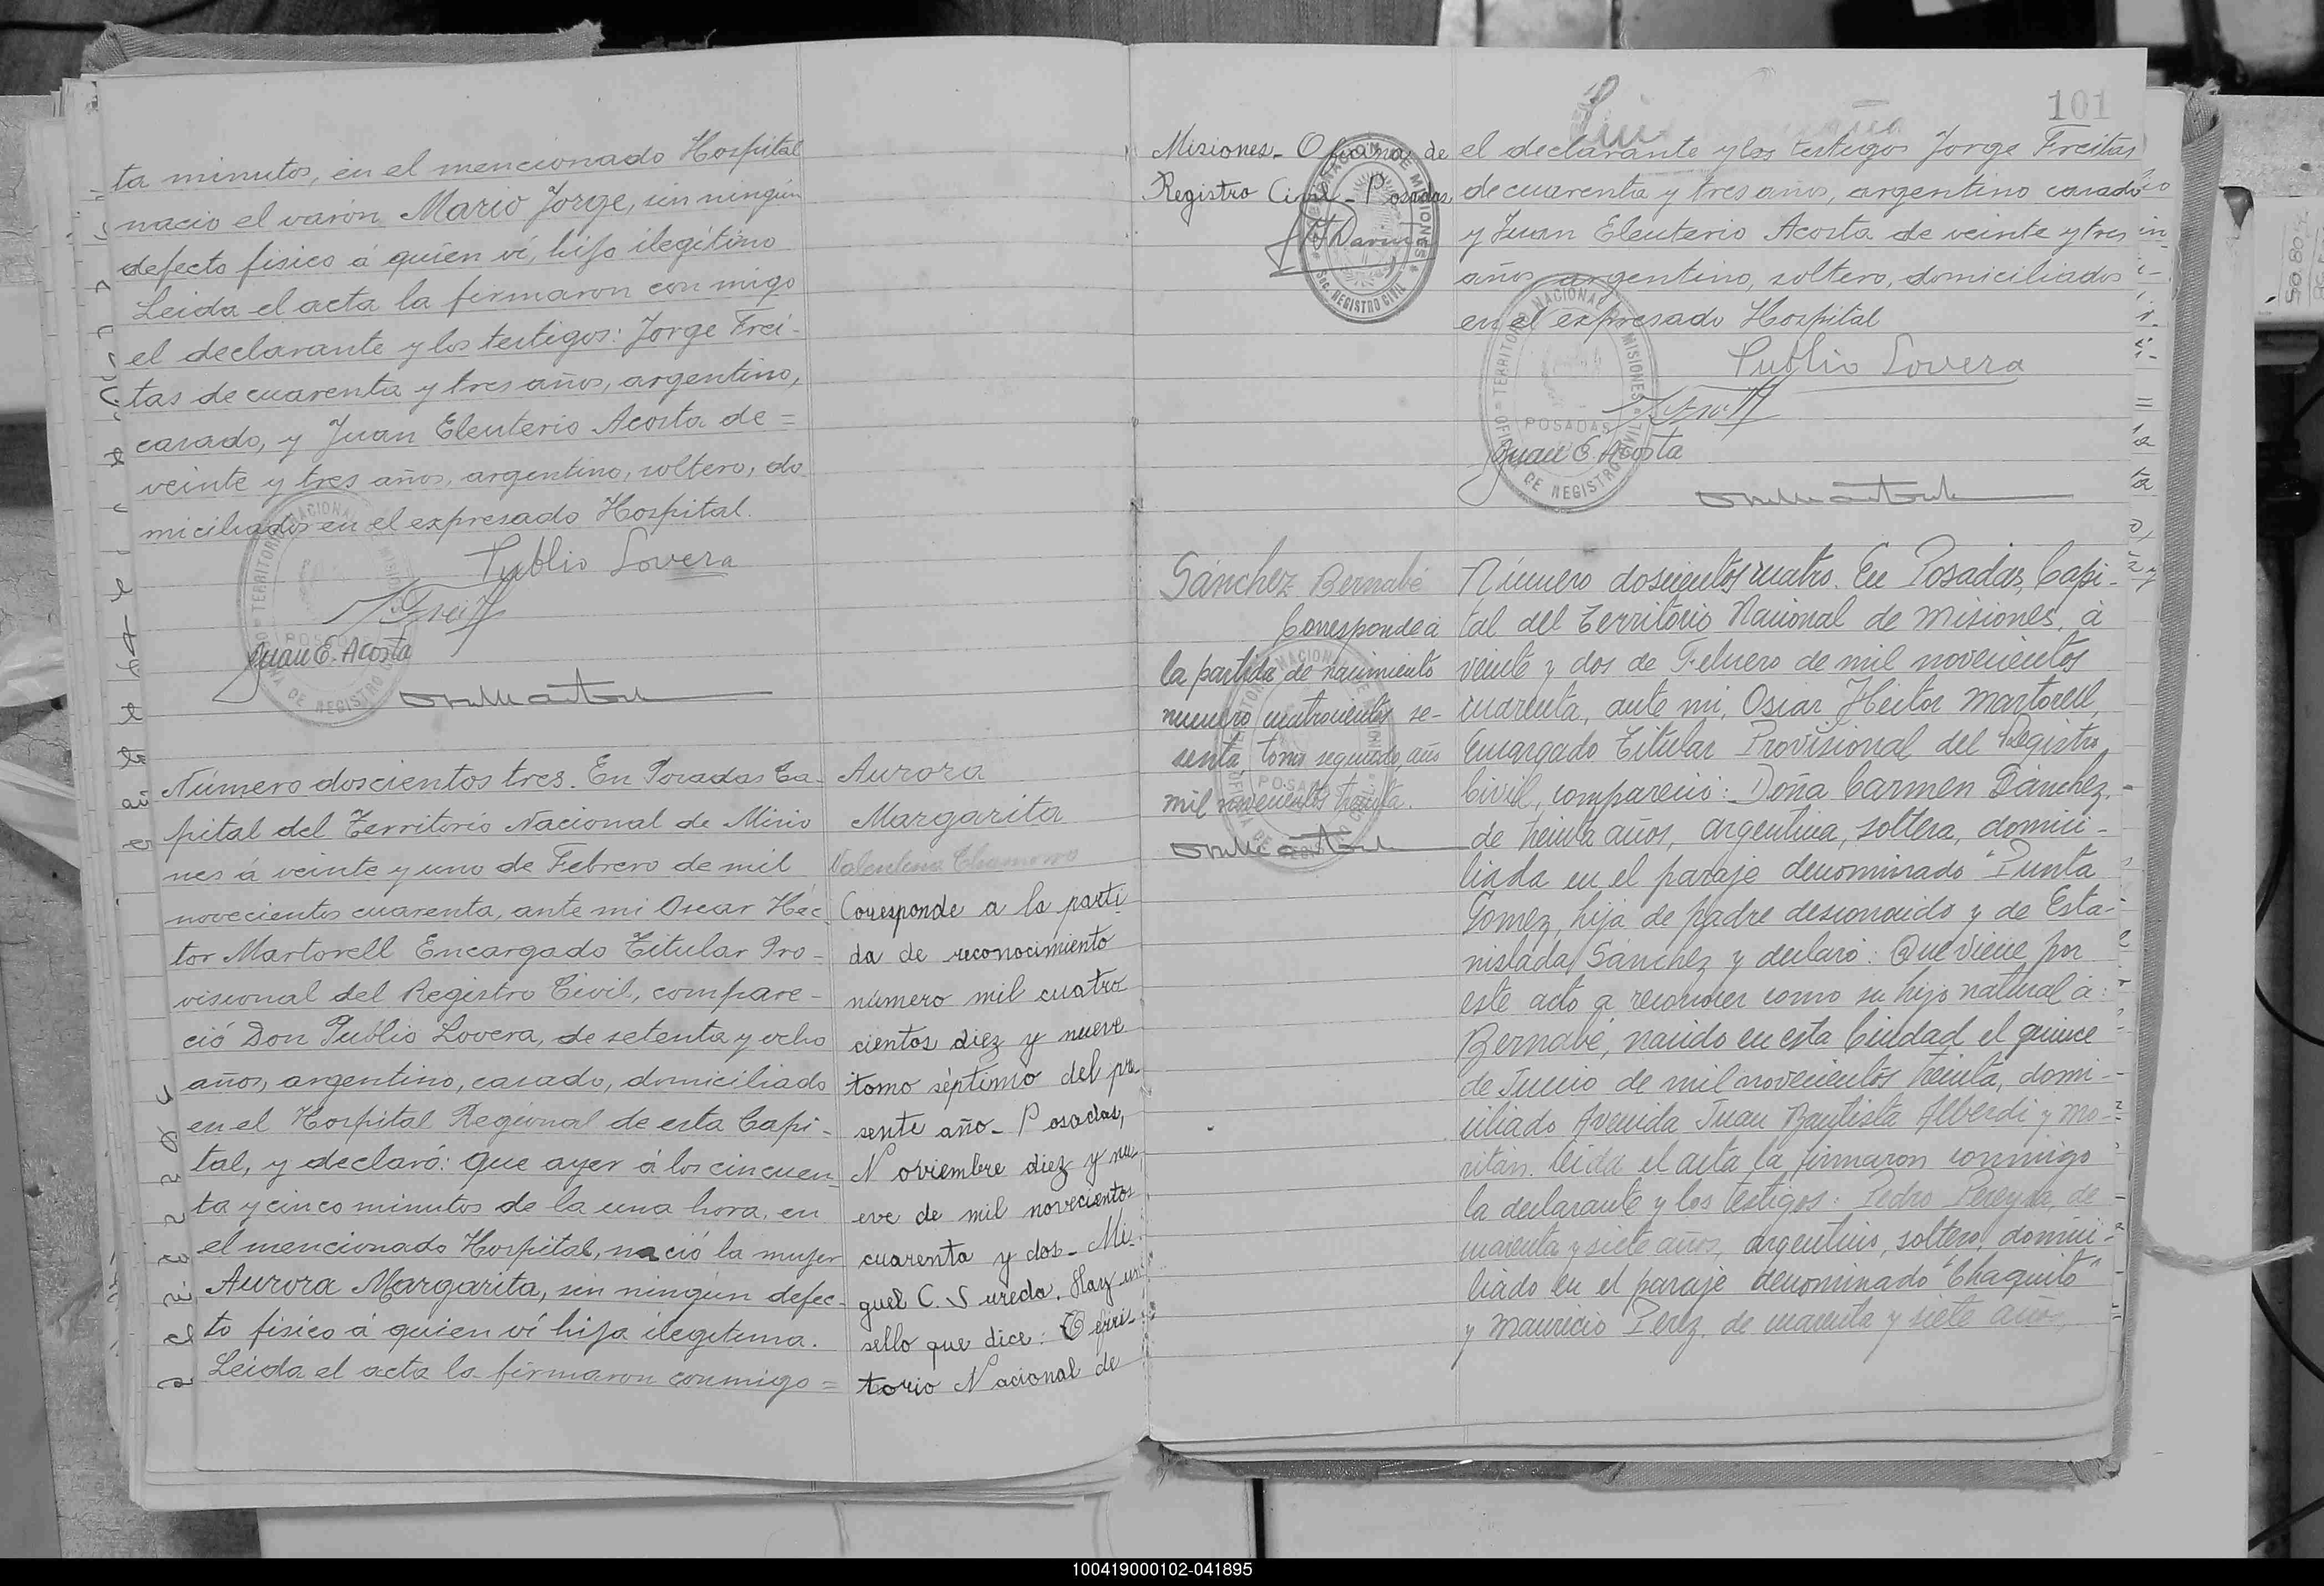 ta minutos, en el mencionado Hospital
nació el varón Mario Jorge, sin ningún
defecto físico á quien ví, hijo ilegítimo
Leida el acta la firmaron con migo
el declarante y los testigos: Jorge Frei-
tas de cuarenta y tres años, argentino,
casado, y Juan Eleuterio Acosta de =
veinte y tres años, argentino, soltero, do
miciliados en el expresado Hospital.
Publio Lovera
Juan E. Acosta
Número doscientos tres. En Posadas Ca-
pital del Territorio Nacional de Misio
nes á veinte y uno de Febrero de mil
novecientos cuarenta, ante mi Oscar Héc-
tor Martorell Encargado Titular Pro-
visional del Registro Civil, compare-
ció Don Publio Lovera, de setenta y ocho
años, argentino, casado, domiciliado
en el Hospital Regional de esta Capi-
tal, y declaró: Que ayer á los cincuen-
ta y cinco minutos de la una hora, en
el mencionado Hospital, nació la mujer
Aurora Margarita, sin ningún defec-
to físico á quien ví hija ilegítima.
Leida el acta la firmaron conmigo =
Aurora
Margarita
Valentina Chamorro
Corresponde a la parti
da de reconocimiento
número mil cuatro
cientos diez y nueve
tomo séptimo del pre-
sente año- Posadas,
Noviembre diez y nu-
eve de mil novecientos
cuarenta y dos- Mi-
guel C. Sureda. Hay un
sello que dice: Terri-
torio Nacional de
101
Misiones- Oficina de
Registro Civil- Posadas
GOBERNACIÓN DE MISIONES
SEC. REGISTRO CIVIL
el declarante y los testigos Jorge Freitas
de cuarenta y tres años, argentino casado
y Juan Eleuterio Acosta de veinte y tres
años argentino, soltero, domiciliados
en el expresado Hospital
Publio Lovera
Juan E. Acosta
TERRITORIO NACIONAL MISIONES
POSADAS
OFICINA DE REGISTRO CIVIL
Sánchez Bernabé
Corresponde a
la partida de nacimiento
numero cuatrocientos se-
senta tomo segundo, año
mil novecientos treinta.
Número doscientos cuatro. En Posadas, Capi-
tal del Territorio Nacional de Misiones, á
veinte y dos de Febrero de mil novecientos
cuarenta, ante mi, Oscar Héctor Martorell,
Encargado Titular Provisional del Registro
Civil, compareció: Doña Carmen Sánchez,
de treinta años, argentina, soltera, domici-
liada en el paraje denominado "Punta
Gomez, hija de padre desconocido y de Esta-
nislada Sánchez y declaró: Que viene por
este acto a reconocer como su hijo natural á:
Bernabé, nacido en esta Ciudad el quince
de Junio de mil novecientos treinta, domi-
ciliado Avenida Juan Bautista Alberdi y Mo-
ritán. leida el acta la firmaron conmigo
la declarante y los testigos: Pedro Pereyra, de
cuarenta y siete años, argentino, soltero, domici-
liado en el paraje denominado "Chaquito"
y Mauricio Perez, de cuarenta y siete años,
100419000102-041895